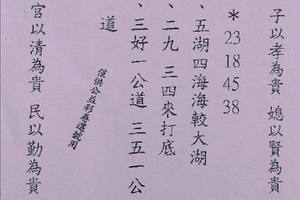 子以孝為貴 媳以賢為貴
＊23 18 45 38
、五湖四海海較大湖
、二九 三四來打底
、三好一公道 三五一公
道
僅供公益彩券選號用
官以清為貴 民以勤為貴